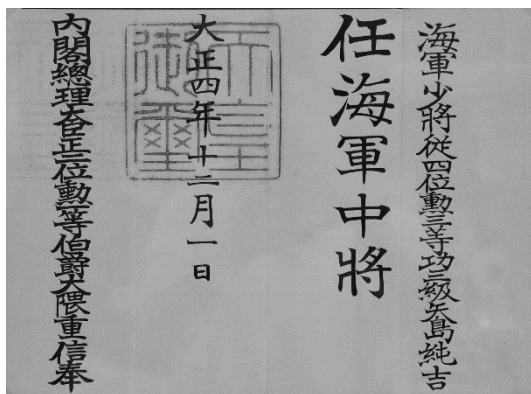 海軍少將從四位勳三等功三級矢島純吉
任海軍中將
天皇御璽
大正四年十二月一日
內閣總理大臣正二位勳一等伯爵大隈重信奉